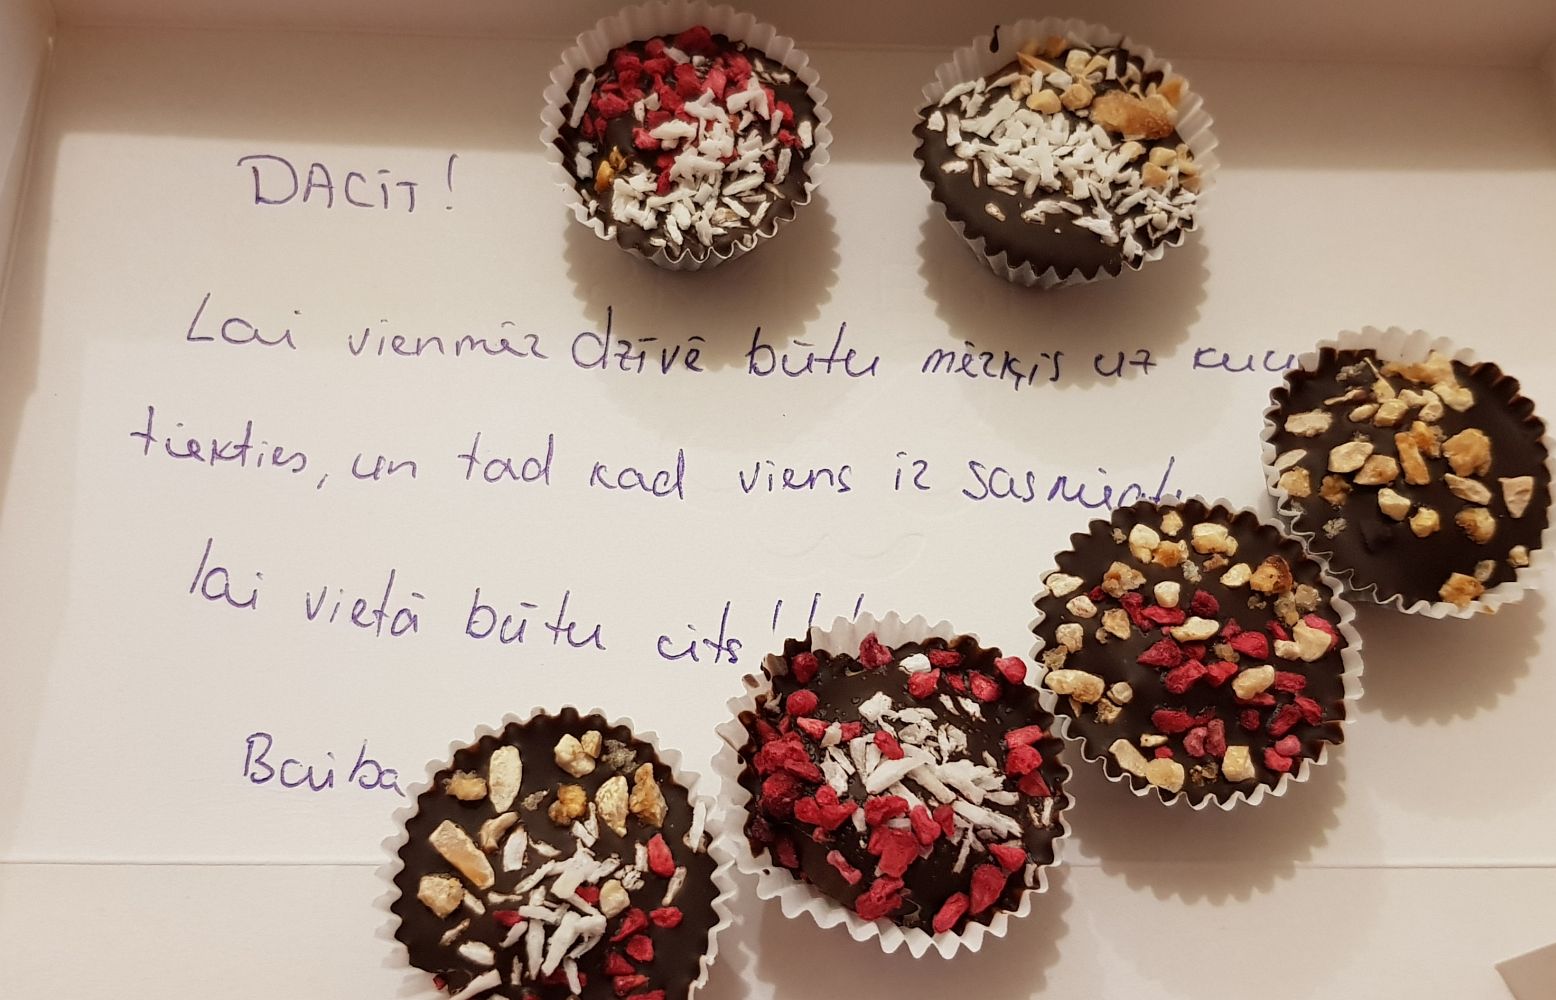 DACĪT!
Lai vienmēr dzīvē būtu mērķis uz kuu
tiekties, un tad kad viens ir
lai vietā būtu cits!!!
Baiba